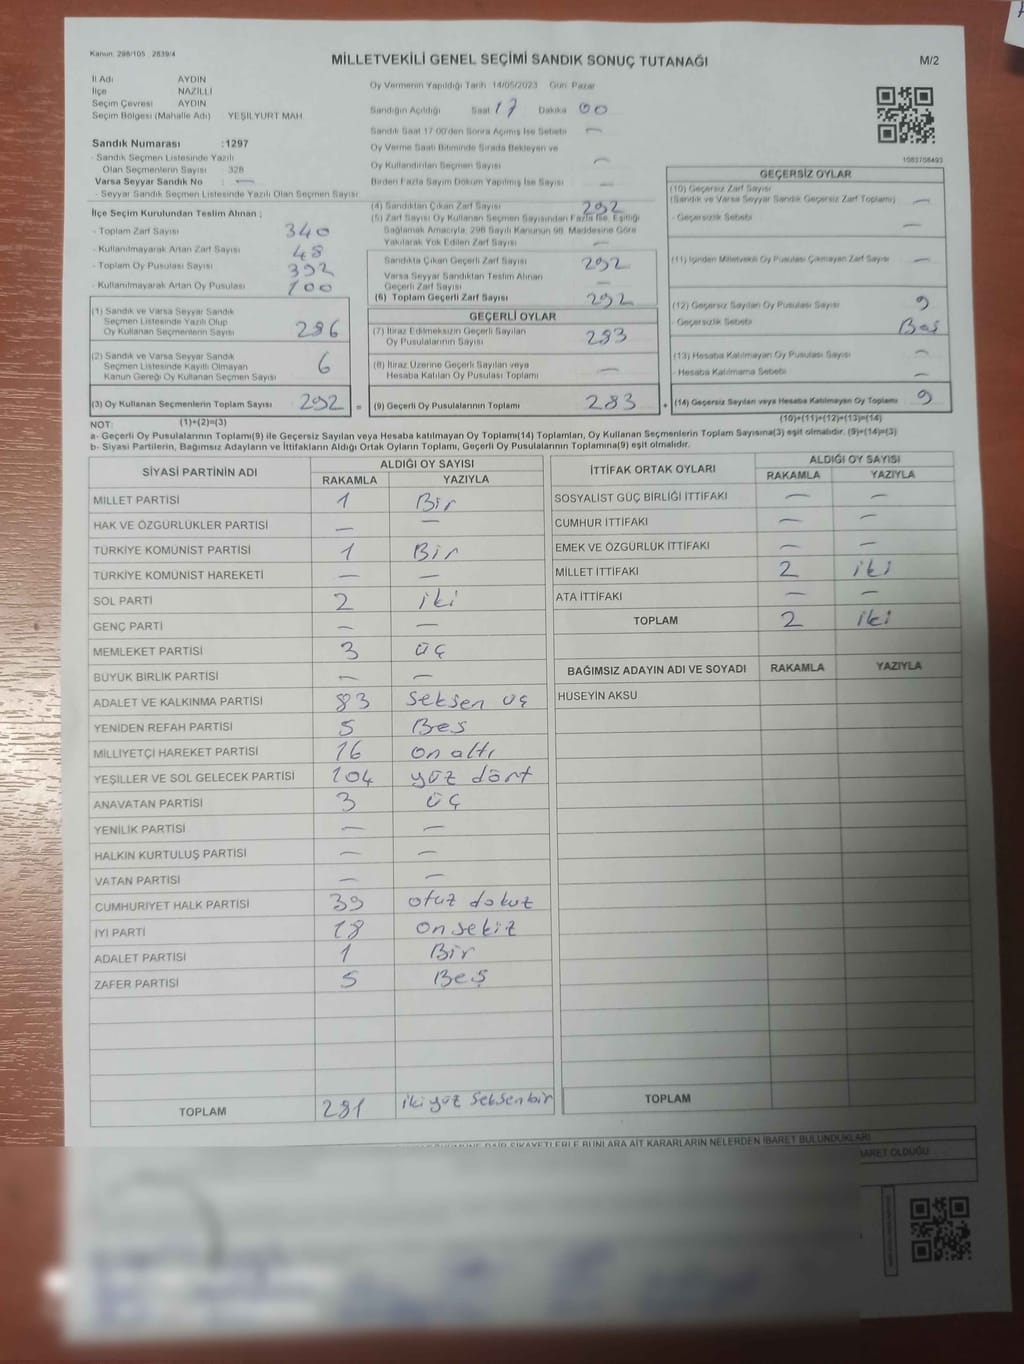 Kanun: 298/105 2839/4
MİLLETVEKİLİ GENEL SEÇİMİ SANDIK SONUÇ TUTANAĞI
M/2
İl Adı AYDIN
İlçe NAZİLLİ
Seçim Çevresi AYDIN
Seçim Bölgesi (Mahalle Adı) YEŞİLYURT MAH.
Sandık Numarası :1297
- Sandık Seçmen Listesinde Yazılı
Olan Seçmenlerin Sayısı 328
Varsa Seyyar Sandık No : —
- Seyyar Sandık Seçmen Listesinde Yazılı Olan Seçmen Sayısı
Oy Vermenin Yapıldığı Tarih 14/05/2023 Gün Pazar
Sandığın Açıldığı Saat 17 Dakika 00
Sandık Saat 17.00'den Sonra Açılmış İse Sebebi —
Oy Verme Saati Bitiminde Sırada Bekleyen ve
Oy Kullandırılan Seçmen Sayısı —
Birden Fazla Sayım Döküm Yapılmış İse Sayısı —
1083708493
İlçe Seçim Kurulundan Teslim Alınan ;
- Toplam Zarf Sayısı 340
- Kullanılmayarak Artan Zarf Sayısı 48
- Toplam Oy Pusulası Sayısı 392
- Kullanılmayarak Artan Oy Pusulası 100
(1) Sandık ve Varsa Seyyar Sandık
Seçmen Listesinde Yazılı Olup
Oy Kullanan Seçmenlerin Sayısı 286
(2) Sandık ve Varsa Seyyar Sandık
Seçmen Listesinde Kayıtlı Olmayan
Kanun Gereği Oy Kullanan Seçmen Sayısı 6
(3) Oy Kullanan Seçmenlerin Toplam Sayısı 292 =
(1)+(2)=(3)
(4) Sandıktan Çıkan Zarf Sayısı 292
(5) Zarf Sayısı Oy Kullanan Seçmen Sayısından Fazla İse, Eşitliği
Sağlamak Amacıyla, 298 Sayılı Kanunun 98. Maddesine Göre
Yakılarak Yok Edilen Zarf Sayısı —
Sandıkta Çıkan Geçerli Zarf Sayısı 292
Varsa Seyyar Sandıktan Teslim Alınan
Geçerli Zarf Sayısı —
(6) Toplam Geçerli Zarf Sayısı 292
GEÇERLİ OYLAR
(7) İtiraz Edilmeksizin Geçerli Sayılan
Oy Pusulalarının Sayısı 283
(8) İtiraz Üzerine Geçerli Sayılan veya
Hesaba Katılan Oy Pusulası Toplamı —
(9) Geçerli Oy Pusulalarının Toplamı 283 +
GEÇERSİZ OYLAR
(10) Geçersiz Zarf Sayısı
(Sandık ve Varsa Seyyar Sandık Geçersiz Zarf Toplamı) —
- Geçersizlik Sebebi —
(11) İçinden Milletvekili Oy Pusulası Çıkmayan Zarf Sayısı —
(12) Geçersiz Sayılan Oy Pusulası Sayısı 9
- Geçersizlik Sebebi Boş
(13) Hesaba Katılmayan Oy Pusulası Sayısı —
- Hesaba Katılmama Sebebi —
(14) Geçersiz Sayılan veya Hesaba Katılmayan Oy Toplamı 9
(10)+(11)+(12)+(13)=(14)
NOT:
a- Geçerli Oy Pusulalarının Toplamı(9) ile Geçersiz Sayılan veya Hesaba katılmayan Oy Toplamı(14) Toplamları, Oy Kullanan Seçmenlerin Toplam Sayısına(3) eşit olmalıdır. (9)+(14)=(3)
b- Siyasi Partilerin, Bağımsız Adayların ve İttifakların Aldığı Ortak Oyların Toplamı, Geçerli Oy Pusulalarının Toplamına(9) eşit olmalıdır.
SİYASİ PARTİNİN ADI
ALDIĞI OY SAYISI
RAKAMLA YAZIYLA
MİLLET PARTİSİ 1 Bir
HAK VE ÖZGÜRLÜKLER PARTİSİ — —
TÜRKİYE KOMÜNİST PARTİSİ 1 Bir
TÜRKİYE KOMÜNİST HAREKETİ — —
SOL PARTİ 2 iki
GENÇ PARTİ — —
MEMLEKET PARTİSİ 3 üç
BÜYÜK BİRLİK PARTİSİ — —
ADALET VE KALKINMA PARTİSİ 83 seksen üç
YENİDEN REFAH PARTİSİ 5 Beş
MİLLİYETÇİ HAREKET PARTİSİ 16 on altı
YEŞİLLER VE SOL GELECEK PARTİSİ 104 yüz dört
ANAVATAN PARTİSİ 3 üç
YENİLİK PARTİSİ — —
HALKIN KURTULUŞ PARTİSİ — —
VATAN PARTİSİ — —
CUMHURİYET HALK PARTİSİ 39 otuz dokuz
İYİ PARTİ 18 on sekiz
ADALET PARTİSİ 1 Bir
ZAFER PARTİSİ 5 Beş
TOPLAM 281 iki yüz seksen bir
İTTİFAK ORTAK OYLARI
ALDIĞI OY SAYISI
RAKAMLA YAZIYLA
SOSYALİST GÜÇ BİRLİĞİ İTTİFAKI — —
CUMHUR İTTİFAKI — —
EMEK VE ÖZGÜRLÜK İTTİFAKI — —
MİLLET İTTİFAKI 2 iki
ATA İTTİFAKI — —
TOPLAM 2 iki
BAĞIMSIZ ADAYIN ADI VE SOYADI RAKAMLA YAZIYLA
HÜSEYİN AKSU
TOPLAM
ŞİKAYETLERLE BUNLARA AİT KARARLARIN NELERDEN İBARET BULUNDUKLARI
İBARET OLDUĞU